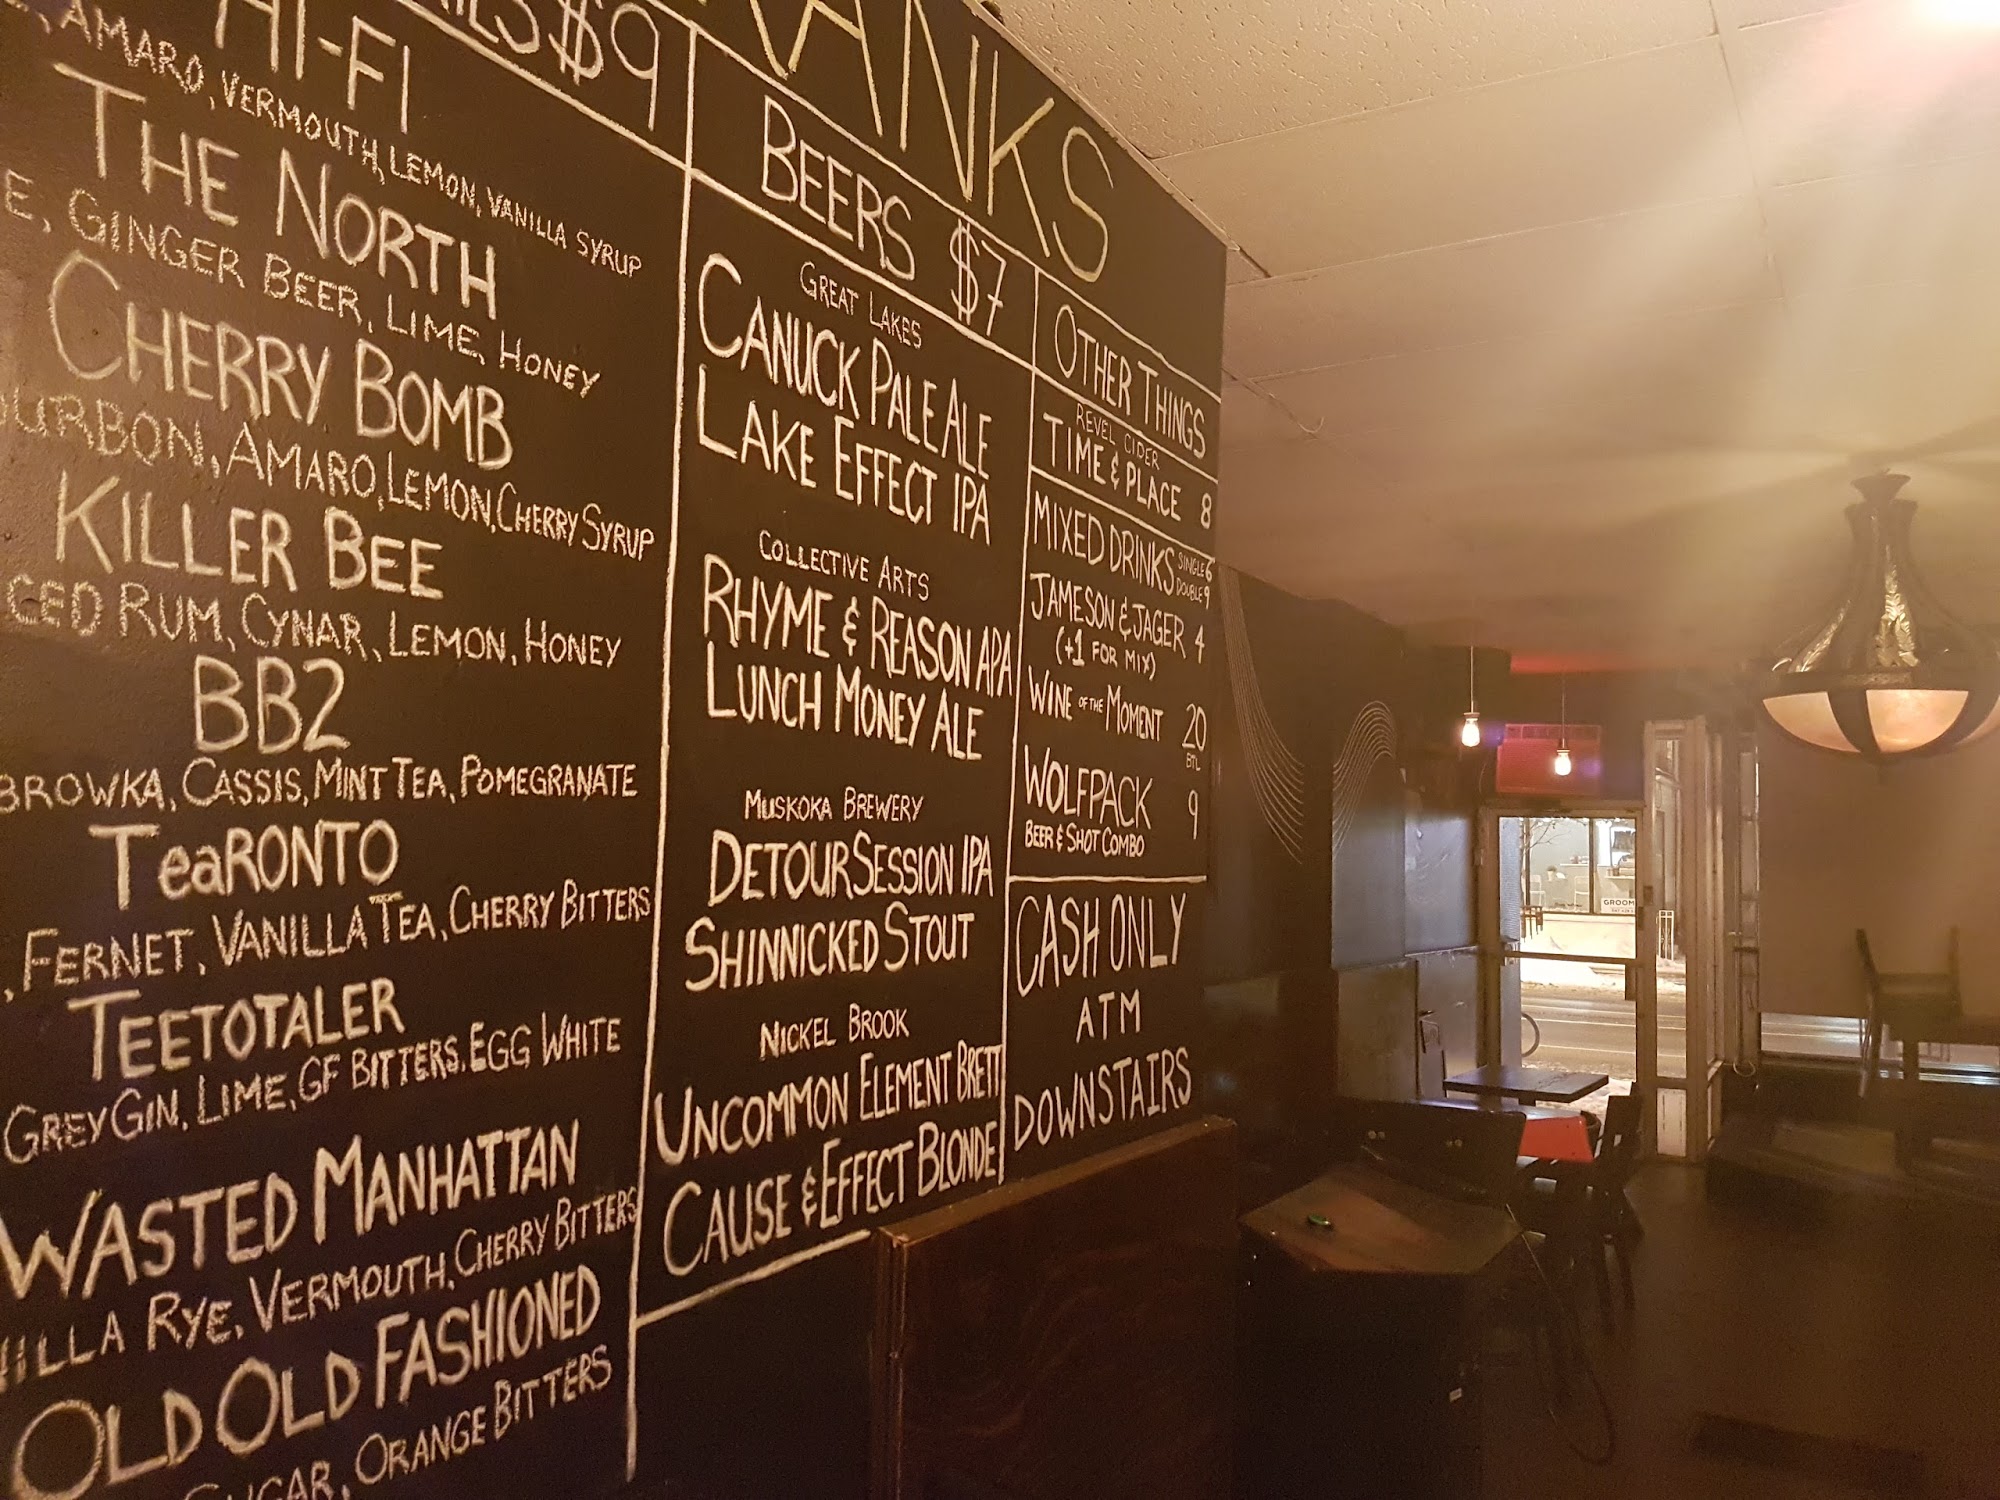 $9
HI-FI
AMARO, VERMOUTH, LEMON, VANILLA SYRUP
THE NORTH
GINGER BEER, LIME, HONEY
CHERRY BOMB
AMARO, LEMON, CHERRY SYRUP
KILLER BEE
RUM, CYNAR, LEMON, HONEY
BB2
CASSIS, MINT TEA, POMEGRANATE
TeaRONTO
, FERNET, VANILLA TEA, CHERRY BITTERS
TEETOTALER
GREY GIN, LIME, GF BITTERS, EGG WHITE
WASTED MANHATTAN
RYE, VERMOUTH, CHERRY BITTERS
OLD OLD FASHIONED
SUGAR, ORANGE BITTERS
BEERS $7
GREAT LAKES
CANUCK PALE ALE
LAKE EFFECT IPA
COLLECTIVE ARTS
RHYME & REASON APA
LUNCH MONEY ALE
MUSKOKA BREWERY
DETOUR SESSION IPA
SHINNICKED STOUT
NICKEL BROOK
UNCOMMON ELEMENT BRETT
CAUSE & EFFECT BLONDE
OTHER THINGS
REVEL CIDER
TIME & PLACE 8
MIXED DRINKS SINGLE 6
DOUBLE 9
JAMESON & JAGER 4
(+1 FOR MIX)
WINE OF THE MOMENT 20
BTL
WOLFPACK 9
BEER & SHOT COMBO
CASH ONLY
ATM
DOWNSTAIRS
GROOM